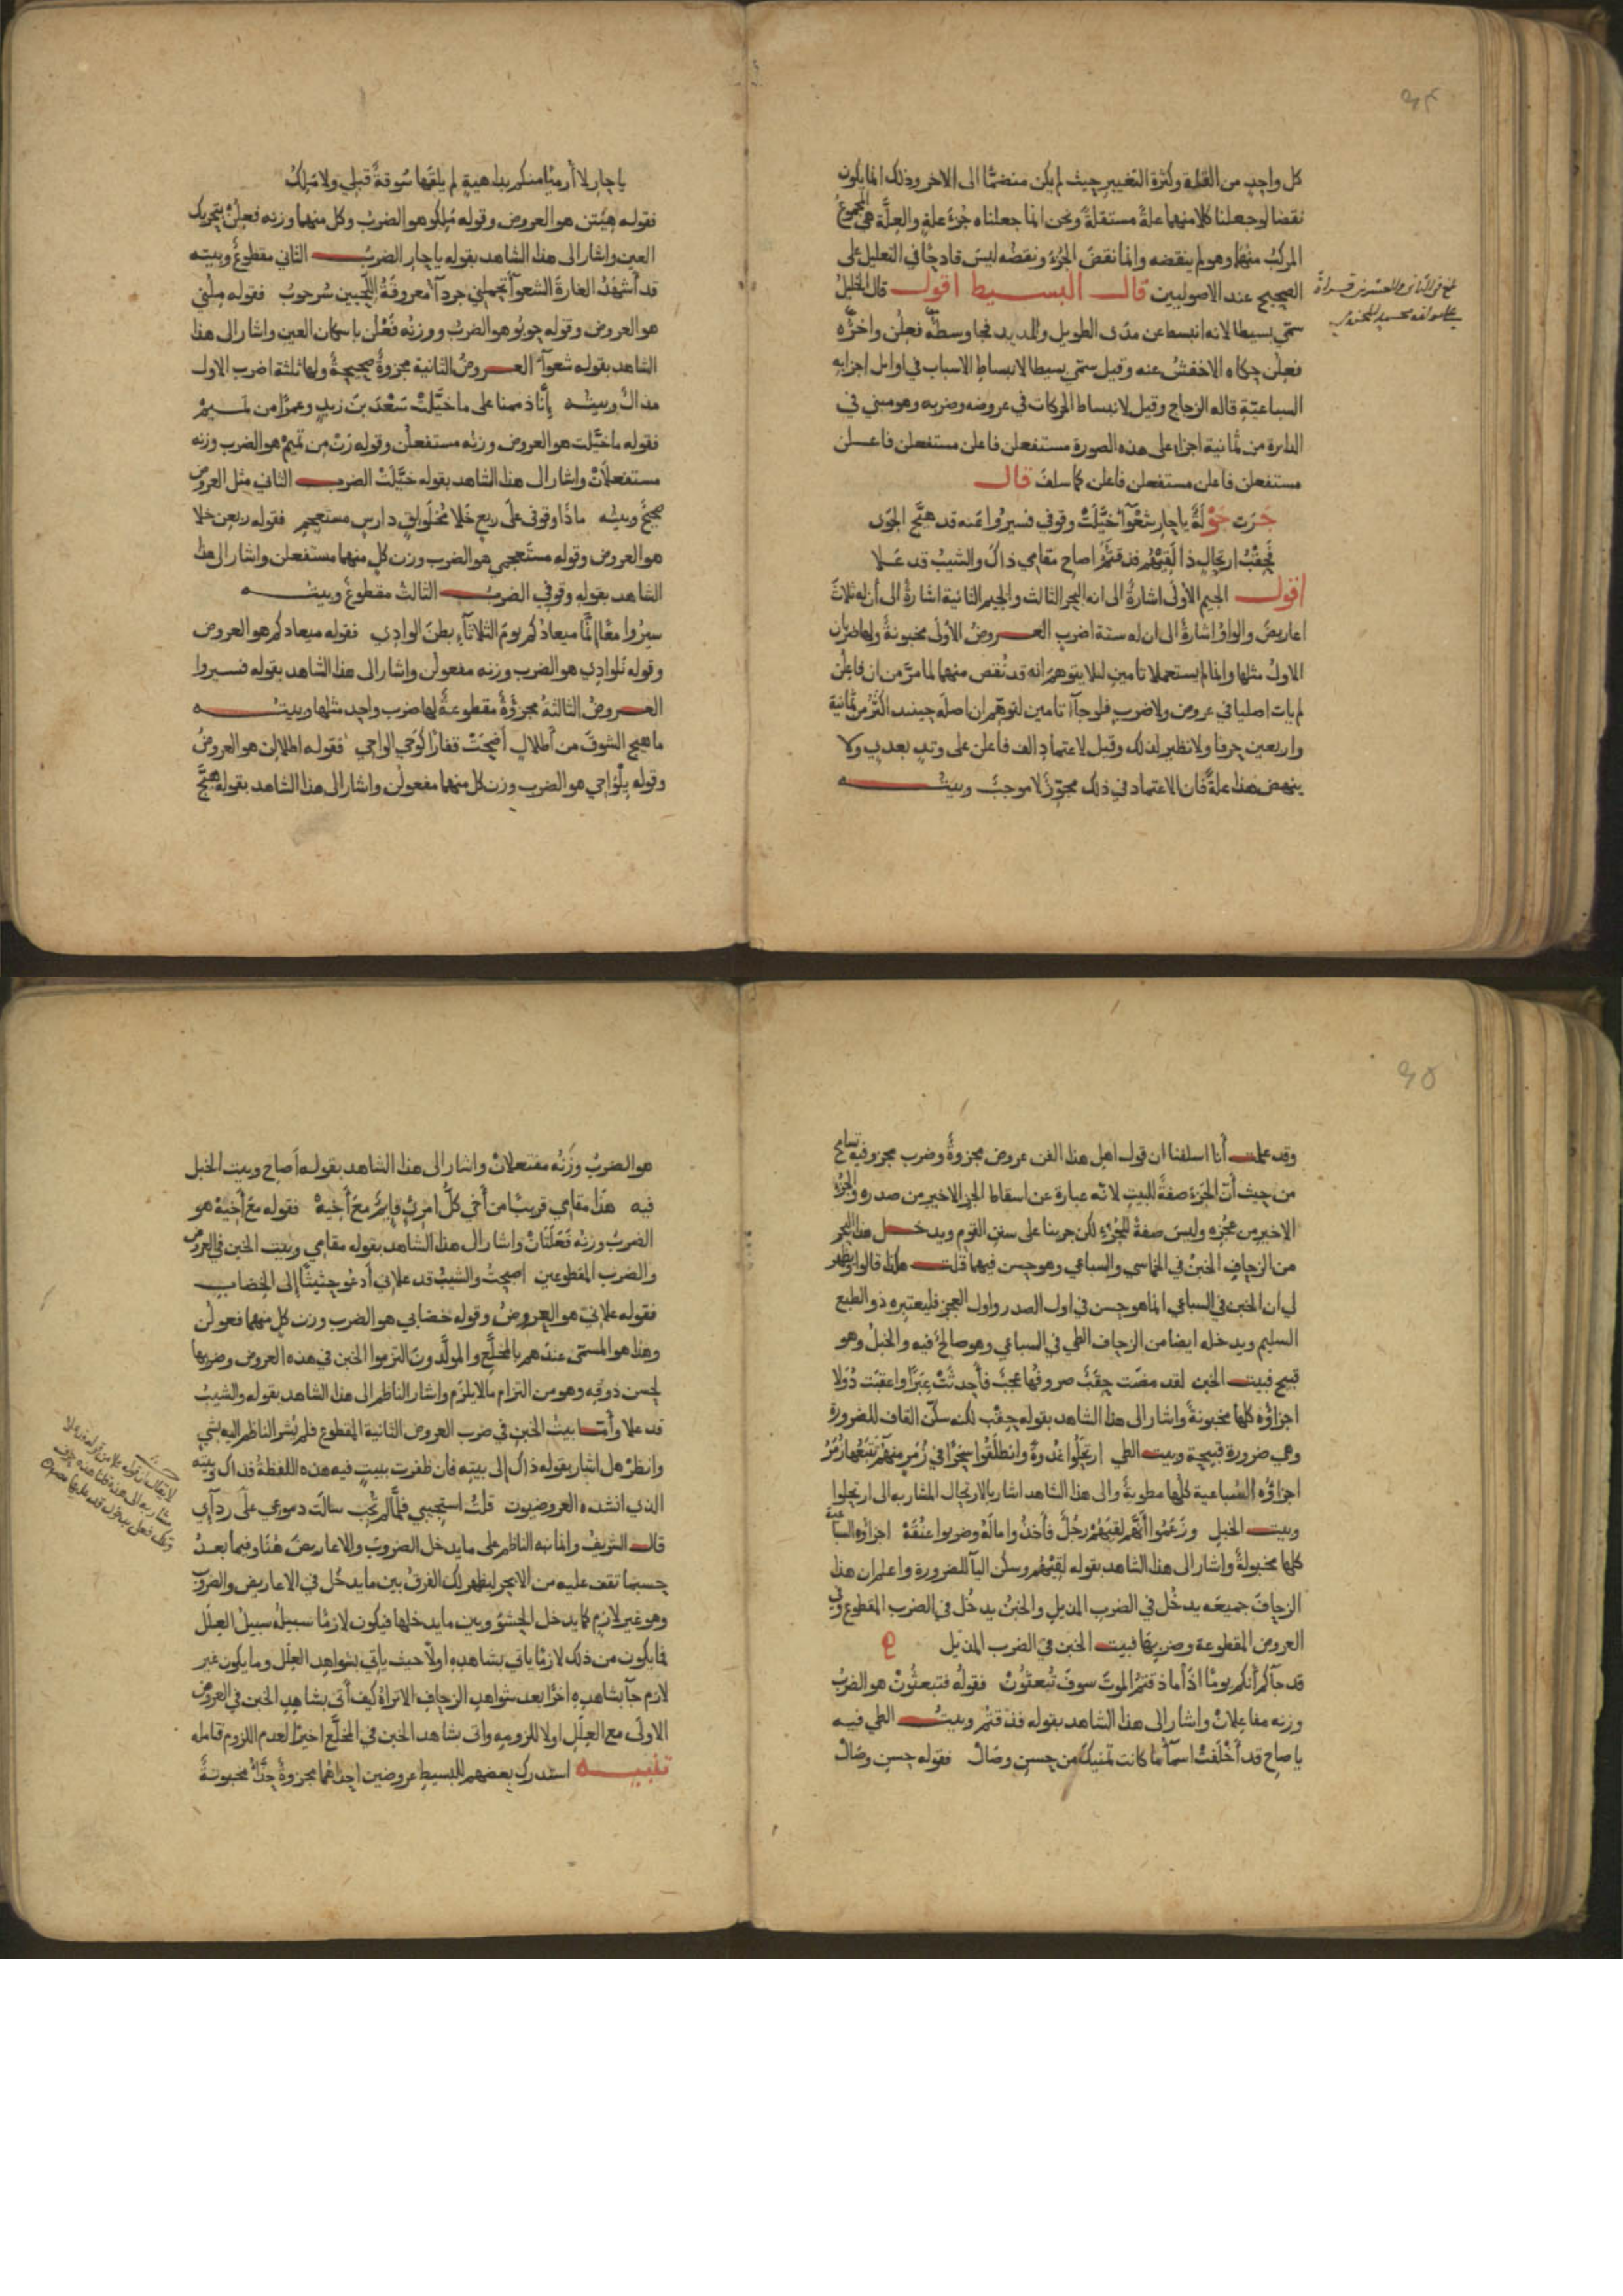 ٩٤
كل واحد من القلة وكثرة التغيير حيث لم يكن منضما الى الاخر وذلك انما يكون
نقضا لو جعلنا كلا منهما علةً مستقلةً ونحن انما جعلناه جزءَ علةٍ والعلة هي المجموعُ
المركبُ منهما وهو لم ينقضه وانما نقضَ الجزءَ ونقضُه ليسَ قادحًا في التعليل على
الصحيح عند الاصوليين قال البسيط اقول قال الخليلُ
سمي بسيطا لانه انبسط عن مدى الطويل والمديد فجا وسطُه فعِلُن واخرُه
فعِلُن حكاه الاخفشُ عنه وقيل سمي بسيطا لانبساطِ الاسباب في اوايل اجزايه
السباعيّةِ قاله الزجاج وقيل لانبساط الحركات في عروضه وضربه وهو مبني في
الدايرة من ثمانية اجزاء على هذه الصورة مستفعلن فاعلن مستفعلن فاعلن
مستفعلن فاعلن مستفعلن فاعلن كما سلف قال
جَرَت جَوْلَةً يا حارِ شعْوآ خيَّلَتْ وقوفي فسيرُوا عَنه قد هيَّج الجَوَى
فحِقْبُ ارتحالٍ ذا لقِيْهُم فذقتُمُ اصاحِ مقامي ذاكَ والشيبُ قد عَلا
اقول الجيم الاولى اشارةُ الى انه البحر الثالث والجيم الثانية اشارةُ الى أن له ثلاثَ
اعاريضَ والواوُ اشارةُ الى ان له ستة اضرب العروضُ الاولى مخبونةُ ولها ضربان
الاولُ مثلها وانما لم يستعملا تامين لئلا يتوهمَ انه قد نُقص منهما لما مرَّ من ان فاعِلُن
لم يات اصليا في عروض ولا ضرب فلو جآآ تامين لتوهِّم ان اصلَه حينئذ اكثرُ من ثمانيةٍ
واربعين حرفا ولا نظير لذلك وقيل لاعتمادِ الف فاعلن على وتدٍ بعدها ولا
ينهض هذا علةً فان الاعتماد في ذلك مجوّزٌ لا موجبٌ وبيته
بلغ في الثاني والعشرين قراءةً
على مولفه محمد
يا حارِ لا أُرمينْ منكم بداهيةٍ لم يلقَها سُوقةٌ قبلي ولا مَلِكُ
فقوله هيَتِن هو العروض وقوله مَلِكو هو الضربُ وكل منهما وزنه فعِلُن بتحريك
العين واشار الى هذا الشاهد بقوله يا حارِ الضربُ الثاني مقطوعٌ وبيته
قد أَشهدُ الغارةَ الشعوآ تحملني جردآ معروقةُ اللَّحيين سُرحوبُ فقوله مِلُني
هو العروض وقوله حوبُو هو الضربُ ووزنه فَعْلن باسكان العين واشار الى هذا
الشاهد بقوله شعوآ العروضُ الثانية مجزوةٌ صحيحةٌ ولها ثلثة اضرب الاول
مذالٌ وبيته إنّا ذممنا على ما خيَّلتْ سَعْدَ بنَ زيدٍ وعمرًا من تميمْ
فقوله ما خيَّلت هو العروض وزنه مستفعلن وقوله رَنْ مِن تميمْ هو الضرب وزنه
مستفعلانْ واشار الى هذا الشاهد بقوله خيَّلَتْ الضرب الثاني مثل العروض
صحيحٌ وبيته ماذا وقوفي على ربعٍ خلا مُخلَولِقٍ دارسٍ مستعجمِ فقوله ربعن خلا
هو العروض وقوله مستعجمي هو الضرب وزن كل منهما مستفعلن واشار الى هذا
الشاهد بقوله وقوفي الضربُ الثالث مقطوعٌ وبيته
سيرُوا معًا إنَّما ميعادُكم يومَ الثلاثآءِ بطنَ الوادي فقوله ميعادكم هو العروض
وقوله نلوادي هو الضرب وزنه مفعولن واشار الى هذا الشاهد بقوله فسيروا
العروضُ الثالثة مجزؤةٌ مقطوعةٌ لها ضرب واحد مثلها وبيته
ما هيج الشوقَ من أطلالٍ أضحتْ قفارًا كوَحي الواحي فقوله اطلالِن هو العروضُ
وقوله يِلْوَاحي هو الضرب وزن كل منهما مفعولن واشار الى هذا الشاهد بقوله هيَّج
٩٥
وقد علمت أنا اسلفنا ان قول اهل هذا الفن عروض مجزوةٌ وضرب مجزو فيه تسامح
من حيث أنّ الجزءَ صفةٌ للبيتِ لانّه عبارة عن اسقاط الجزء الاخير من صدره والجزء
الاخير من عجُزه وليسَ صفةً للجُزْءِ لكن جرينا على سنن القوم ويدخل هذا البحر
من الزحافِ الخبنُ في الخماسي والسباعي وهو حسن فيهما قلت هكذا قالوا ويظهر
لي ان الخبن في السباعي انما هو حسن في اول الصدر واول العجز فليعتبره ذو الطبع
السليم ويدخله ايضا من الزحاف الطي في السباعي وهو صالحٌ فيه والخبلُ وهو
قبيح فبيت الخبن لقد مضَت حِقَبٌ صروفُها عجبٌ فأحدثَتْ عِبَرًا واعقبَت دُوَلا
اجزاؤُه كلها مخبونةُ واشار الى هذا الشاهد بقوله حِقْب لكنه سكّن القاف للضرورة
وهي ضرورة قبيحة وبيت الطي ارتحَلُوا غدوةً وانطلَقُوا سَحَرًا في زُمَرٍ منهمُ تتبَعُها زُمَرُ
اجزاؤُه السُباعية كلُّها مطويةٌ والى هذا الشاهد اشار بالارتحال المشار به الى ارتحلوا
وبيت الخبل وزَعَمُوا أنَّهم لقيَهُمْ رجُلٌ فأخذُوا مالَهُ وضربوا عنُقَهْ اجزاؤه السباعية
كلها مخبولةٌ واشار الى هذا الشاهد بقوله لقِيْهُم وسكّن اليآ للضرورة واعلم ان هذا
الزحافَ جميعَه يدخُل في الضرب المذيل والخبنُ يدخُل في الضرب المقطوع وفي
العروض المقطوعة وضربِها فبيت الخبن في الضرب المذيل
قد جآكم أنكم يومًا اذا ما ذقتمُ الموتَ سوفَ تُبعثُونْ فقولُه فتبعثُونْ هو الضربُ
وزنه مفاعلانْ واشار الى هذا الشاهد بقوله فذقتُم وبيتُ الطي فيه
يا صاحِ قد أَخْلَفتْ اسمآ ما كانت تمنيكَ من حسنِ وصَالْ فقوله حسنِ وصَالْ
هو الضربُ وزنُه مفتعلانْ واشار الى هذا الشاهد بقوله أصاح وبيت الخبل
فيه هذا مقامي قريبٌ من أخي كلُّ امرئٍ قايمٌ معَ أَخيهْ فقوله معَ أَخيهْ هو
الضربُ وزنه فَعَلَتَانْ واشار الى هذا الشاهد بقوله مقامي وبيت الخبن في العروض
والضرب المقطوعين اصبحتُ والشيبُ قد علاني أدعُو حثيثًا إلى الخضاب
فقوله علاني هو العروضُ وقوله خضابي هو الضرب وزن كل منهما فعولن
وهذا هو المسمى عندهم بالمخلَّع والمولَّدون التزموا الخبن في هذه العروض وضربها
لحسن ذوقِه وهو من التزام ما لا يلزم واشار الناظم الى هذا الشاهد بقوله والشيبُ
قد علا وأما بيتُ الخبن في ضرب العروض الثانية المقطوع فلم يُشر الناظم اليه بشي
وانظرْ هل اشار بقوله ذاك إلى بيته فان ظفرت ببيتٍ فيه هذه اللفظةُ فذاك وبيته
الذي انشده العروضيون قلتُ استجيبي فلمَّا لم تُجِب سالَت دموعي على ردآي
قال الشريفُ وانما نبه الناظم على ما يدخل الضروبَ والاعاريضَ هُنا وفيما بعدُ
حسبما تقف عليه من الابحر ليظهر لك الفرق بين ما يدخُل في الاعاريض والضروب
وهو غير لازم كما يدخل الحشوَ وبين ما يدخلها فيكون لازمًا سبيلُه سبيلُ العِلَل
فما يكون من ذلك لازمًا ياتي بشاهده اولاً حيث ياتي بشواهد العِلَل وما يكون غير
لازم جآ بشاهده اخرًا بعد شواهد الزحاف الا تراهُ كيف أتى بشاهد الخبن في العروض
الاولى مع العِلَل اولا للزومه واتى بشاهد الخبن في المخلَّع اخيرًا لعدم اللزوم فتامله
تنبيه استدرك بعضهم للبسيط عروضين احداهما مجزوةٌ حذَّاءُ مخبونةٌ